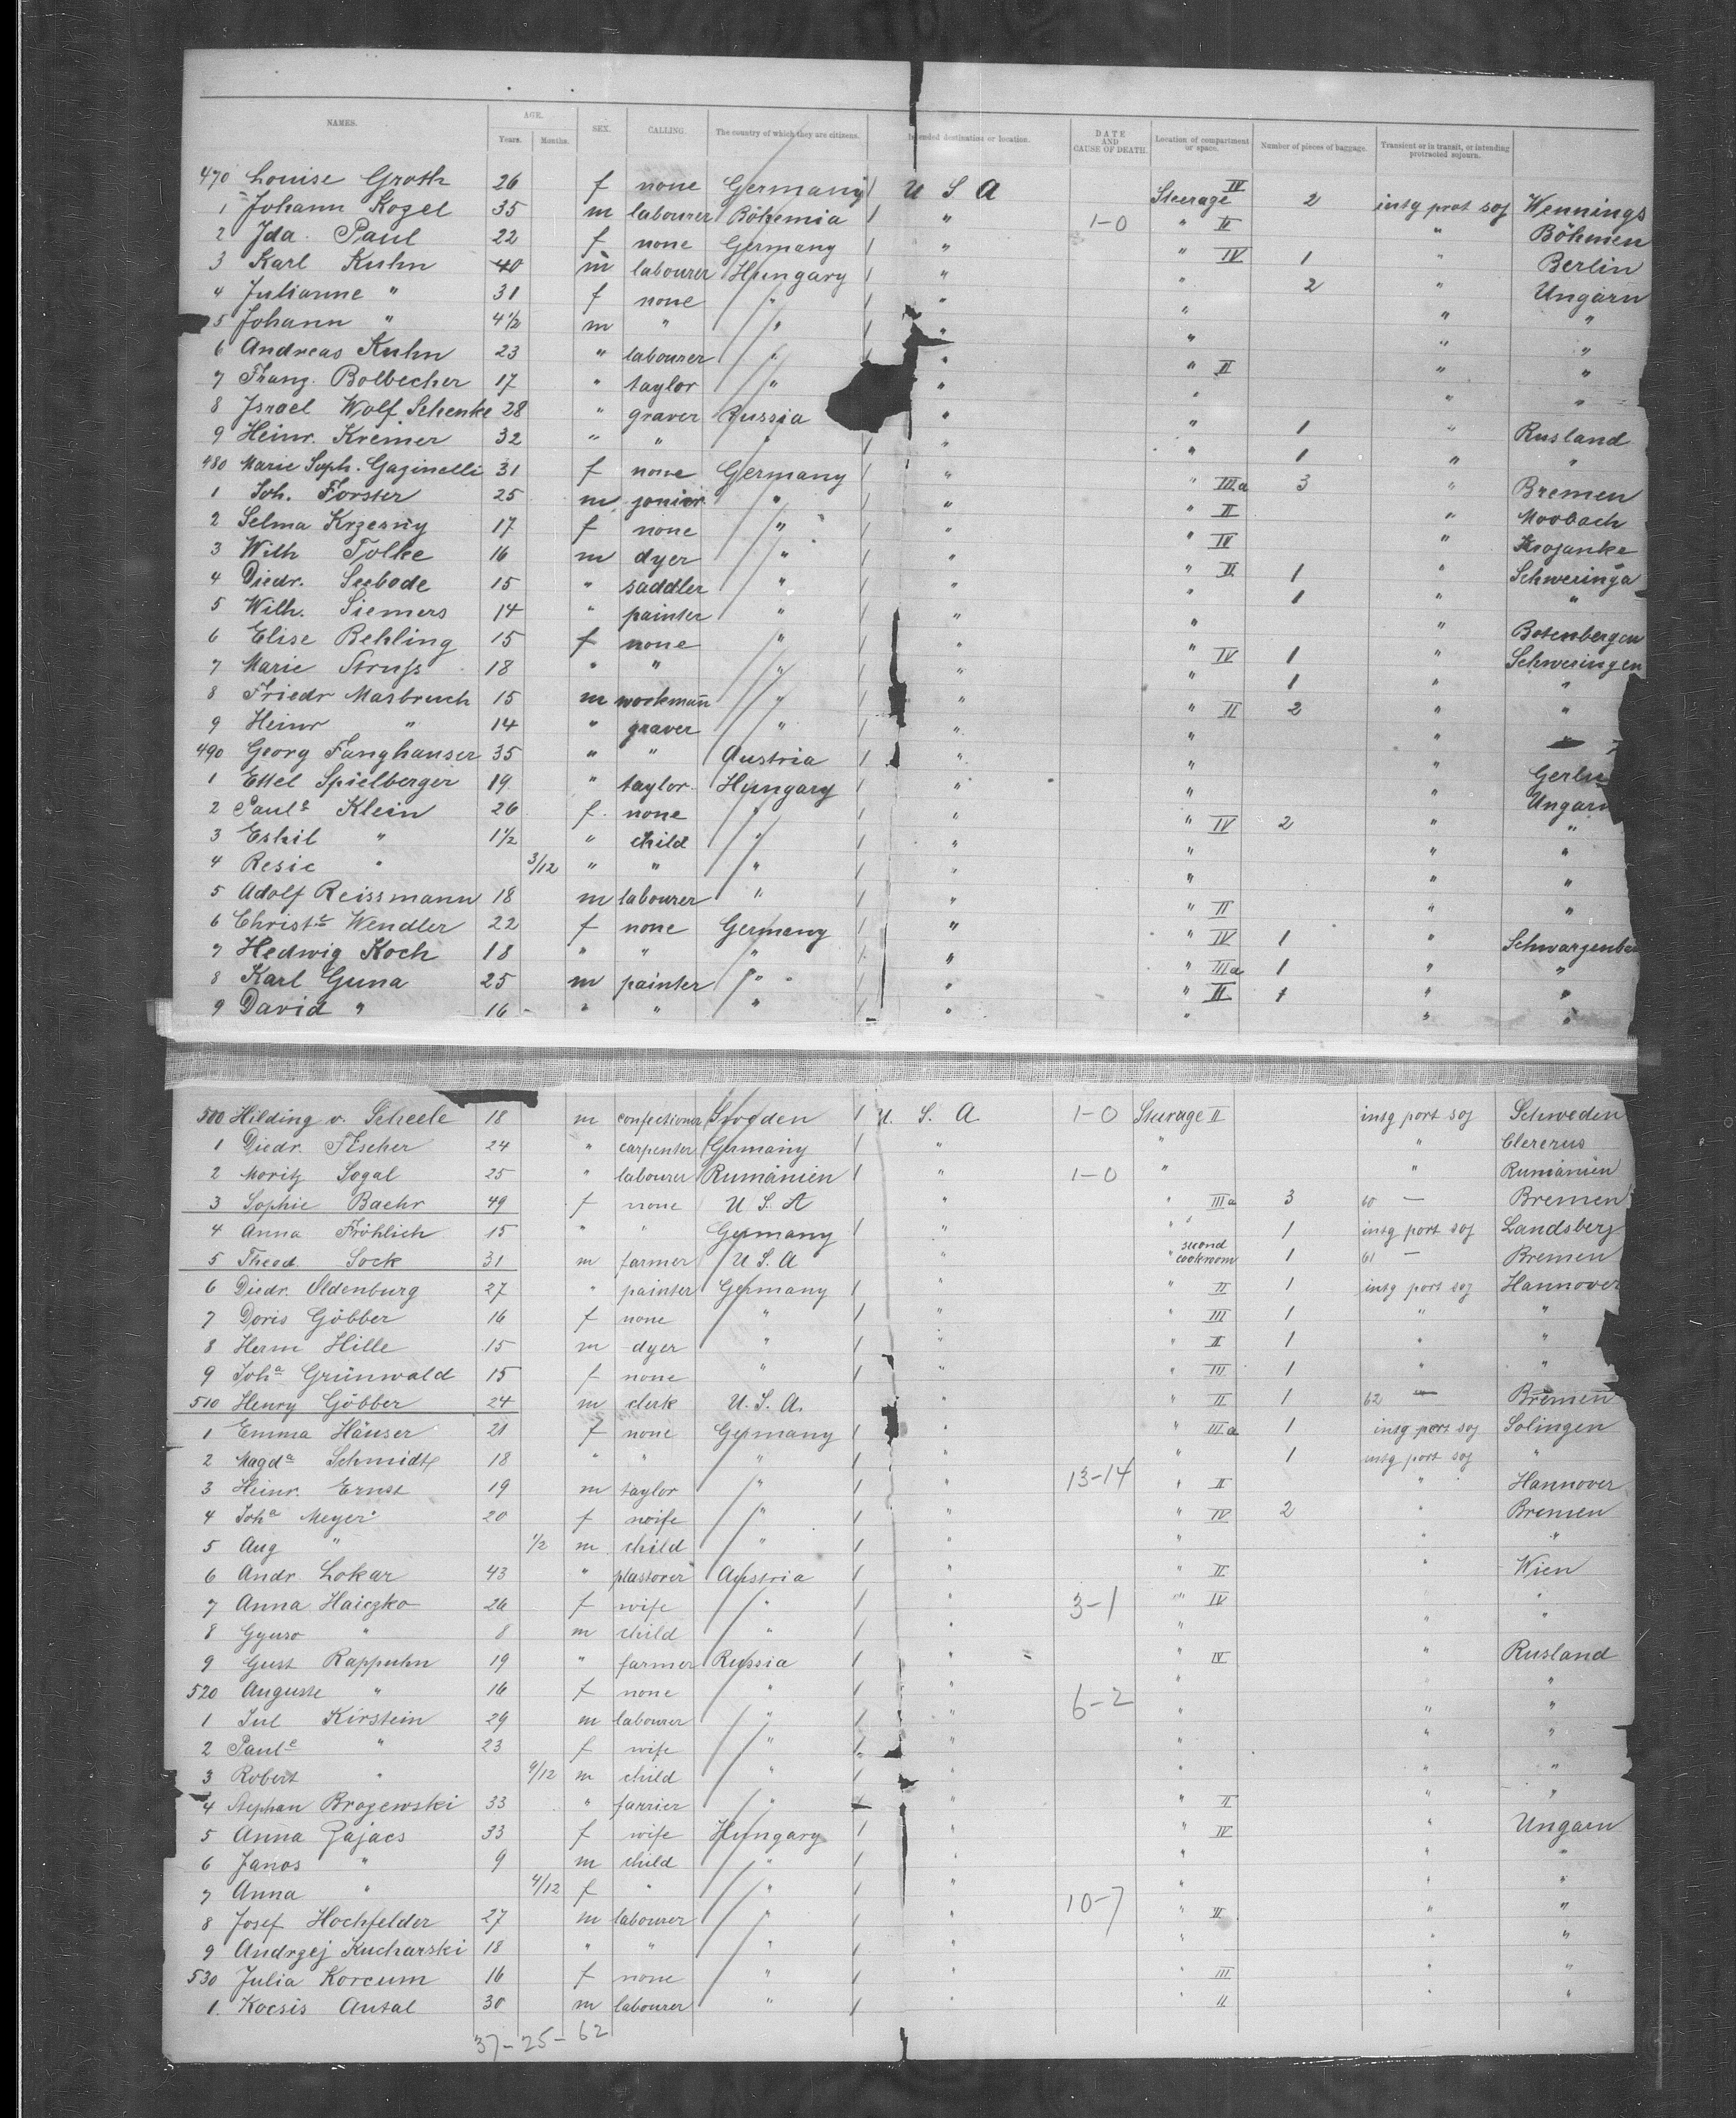 NAMES. AGE. Years. Months. SEX. CALLING. The country of which they are citizens. Intended destination or location. DATE AND CAUSE OF DEATH. Location of compartment or space. Number of pieces of baggage. Transient or in transit, or intending protracted sojourn.
470 Louise Groth 26 f none Germany 1 U S A Steerage IV 2 intg prot soj Wennings
1 Johann Kozel 35 m labourer Böhemia 1 " 1-0 " II " Böhmen
2 Ida Paul 22 f none Germany 1 " " IV 1 " Berlin
3 Karl Kuhn 40 m labourer Hungary 1 " " 2 " Ungarn
4 Julianne " 31 f none " 1 " " " "
5 Johann " 4½ m " " 1 " " " "
6 Andreas Kuhn 23 " labourer " 1 " " II " "
7 Franz Bolbecher 17 " taylor " " " " "
8 Israel Wolf Schenke 28 " graver Russia " " 1 " Rusland
9 Heinr. Kremer 32 " " " 1 " " 1 " "
480 Marie Soph. Gazinelli 31 f none Germany 1 " " IIIa 3 " Bremen
1 Joh. Forster 25 m jonior " 1 " " II " Moobach
2 Selma Krzesny 17 f none " 1 " " IV " Krojanke
3 Wilh Tolke 16 m dyer " 1 " " II 1 " Schweringa
4 Diedr. Seebode 15 " saddler " 1 " " 1 " "
5 Wilh. Siemers 14 " painter " 1 " " " Botenbergen
6 Elise Behling 15 f none " 1 " " IV 1 " Schweringen
7 Marie Struß 18 " " " 1 " " 1 " "
8 Friedr Masbruch 15 m workman " 1 " " II 2 " "
9 Heinr " 14 " graver " 1 " " "
490 Georg Fanghauser 35 " " Austria 1 " " "
1 Ettel Spielberger 19 " taylor Hungary 1 " " " Ungarn
2 Paula Klein 26 f none " 1 " " IV 2 " "
3 Eshil " 1½ " child " 1 " " " "
4 Resie " 3/12 " " " 1 " " " "
5 Adolf Reissmann 18 m labourer " 1 " " II " "
6 Christe Wendler 22 f none Germany 1 " " IV 1 " Schwarzenba
7 Hedwig Koch 18 " " " 1 " " IIIa 1 " "
8 Karl Guna 25 m painter " 1 " " II 1 " "
9 David " 16 " " " 1 " " " "
500 Hilding v. Scheele 18 m confectioner Sweden 1 U. S. A 1-0 Steerage II intg port soj Schweden
1 Diedr. Fischer 24 " carpenter Germany 1 " " "
2 Moritz Sogal 25 " labourer Rumänien 1 " 1-0 " " Rumänien
3 Sophie Baehr 49 f none U. S. A " " IIIa 3 60 — Bremen
4 Anna Fröhlich 15 " " Germany 1 " " 1 intg port soj Landsberg
5 Theod. Sock 31 m farmer U. S. A " " second cookroom 1 61 — Bremen
6 Diedr. Oldenburg 27 " painter Germany 1 " " II 1 intg port soj Hannover
7 Doris Göbber 16 f none " 1 " " III 1 " "
8 Herm Hille 15 m dyer " 1 " " II 1 " "
9 Joha Grünwald 15 f none " 1 " " III 1 " "
510 Henry Göbber 24 m clerk U. S. A. " " II 1 62 — Bremen
1 Emma Häuser 21 f none Germany 1 " " IIIa 1 intg port soj Solingen
2 Magda Schmidt 18 " " " 1 " " 1 intg port soj "
3 Heinr. Ernst 19 m taylor " 1 " 13-14 " II " Hannover
4 Joha Meyer 20 f wife " 1 " " IV 2 " Bremen
5 Aug " ½ m child " 1 " " " "
6 Andr. Lokar 43 " plasterer Austria 1 " " II " Wien
7 Anna Haiczko 26 f wife " 1 " 3-1 " IV "
8 Gyuro " 8 m child " 1 " " " "
9 Gust Rappuhn 19 " farmer Russia 1 " " IV " Rusland
520 Auguste " 16 f none " 1 " 6-2 " " "
1 Jul Kirstein 29 m labourer " 1 " " " "
2 Paule " 23 f wife " 1 " " " "
3 Robert " 9/12 m child " 1 " " " "
4 Stephan Brozewski 33 " farrier " 1 " " II " "
5 Anna Zajacs 33 f wife Hungary 1 " " IV " Ungarn
6 Janos " 9 m child " 1 " " " "
7 Anna " 4/12 f " " 1 " " " "
8 Josef Hochfelder 27 m labourer " 1 " 10-7 " II " "
9 Andrzej Kucharski 18 " " " 1 " " " "
530 Julia Korcum 16 f none " 1 " " III " "
1. Kocsis Antal 30 m labourer " 1 " " II " "
37-25-62